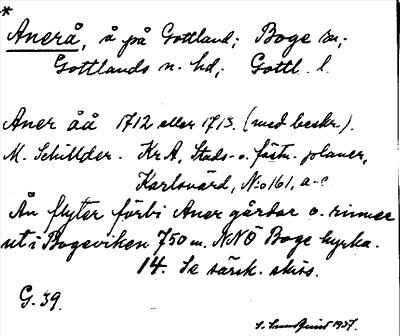 *
Anerå, å på Gottland; Boge sn;
Gottlands n. hd; Gottl. l.
Aner åå 1712 eller 1713. (med beskr.).
M. Schilder. KrA, Stads- o. fästn.-planer,
Karlsvärd, N:o 161, a-c
Ån flyter förbi Aner gårdar o. rinner
ut i Bogeviken 750 m. NNÖ Boge kyrka.
14. Se särsk. skiss.
G. 39.
S. Lundquist 1937.